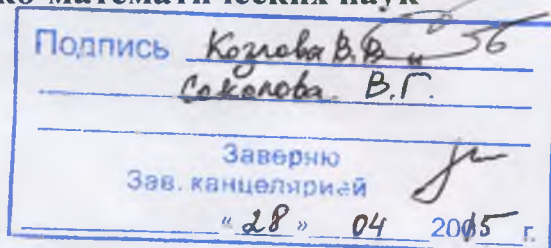 ко-математических наук
Подпись Козлова В.В. и
Соколова В.Г.
Заверяю
Зав. канцелярией
"28" 04 2015 г.